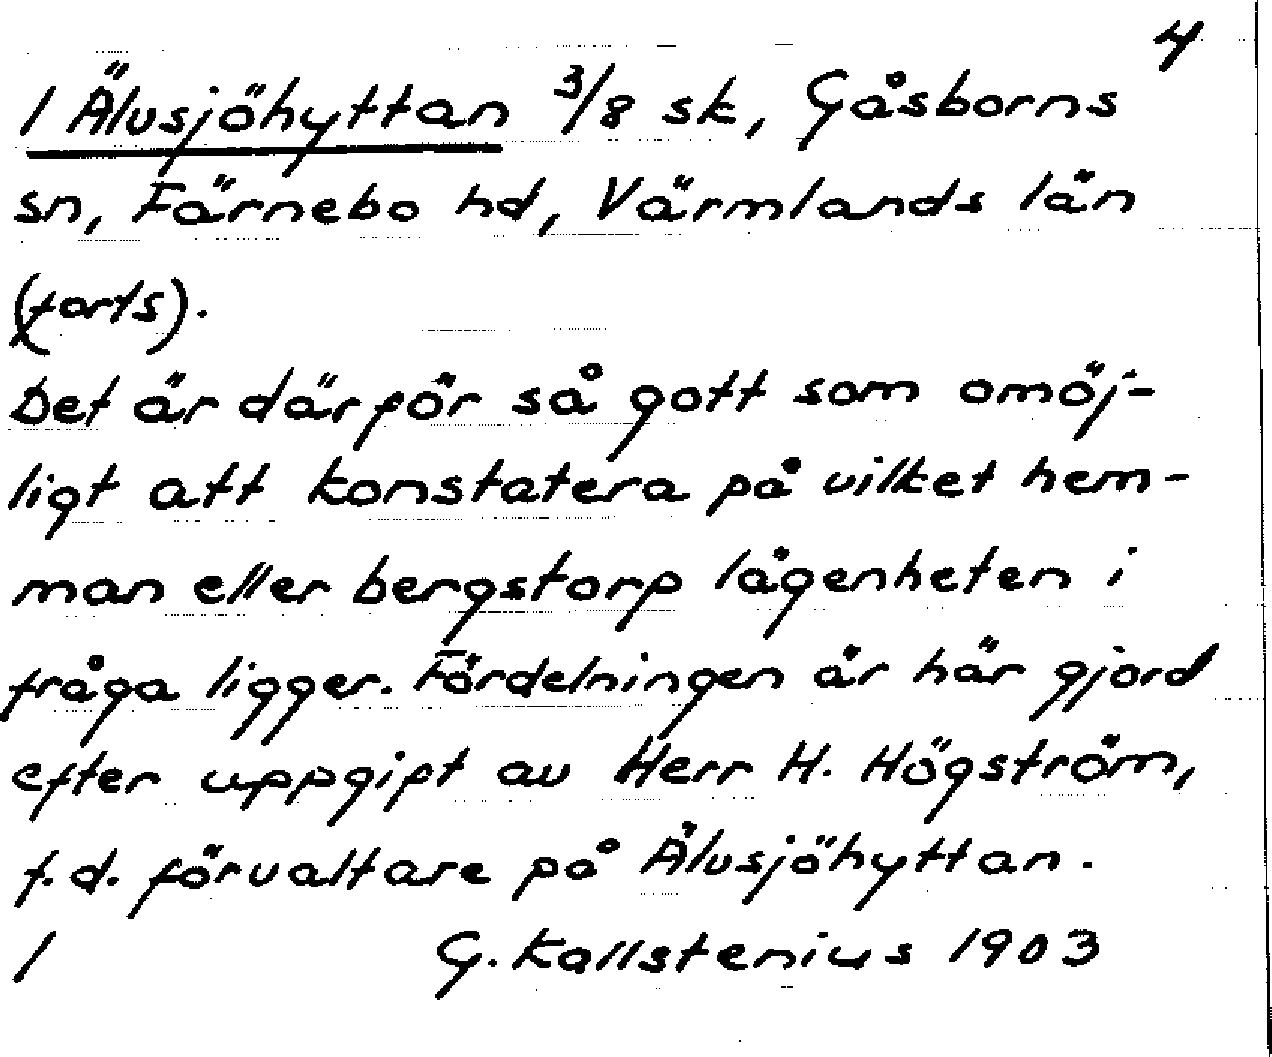 4
/ Älvsjöhyttan 3/8 sk, Gåsborns
sn, Färnebo hd, Värmlands län
(forts).
Det är därför så gott som omöj-
ligt att konstatera på vilket hem-
man eller bergstorp lägenheten i
fråga ligger. Fördelningen är här gjord
efter uppgift av Herr H. Högström,
f.d. förvaltare på Älvsjöhyttan.
/ G. Kallstenius 1903